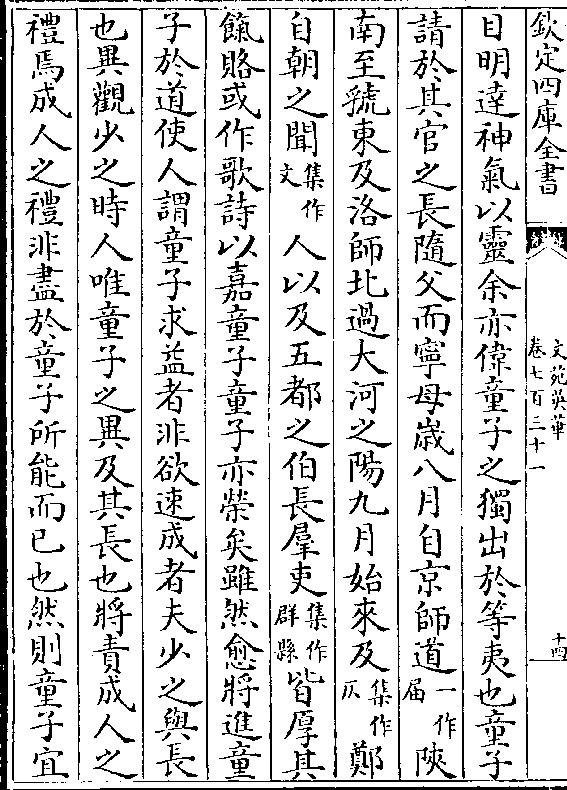 欽定四庫全書
文苑英華
卷七百三十一
十四
目明達神氣以靈余亦偉童子之獨出於等夷也童子
請於其官之長隨父而寧母歳八月自京師道一作屆陜
南至虢東及洛師北過大河之陽九月始來及集作仄鄭
自朝之聞集作文人以及五都之伯長羣吏集作群縣皆厚其
餼賂或作歌詩以嘉童子童子亦榮矣雖然愈將進童
子於道使人謂童子求益者非欲速成者夫少之與長
也異觀少之時人唯童子之異及其長也將責成人之
禮焉成人之禮非盡於童子所能而已也然則童子宜